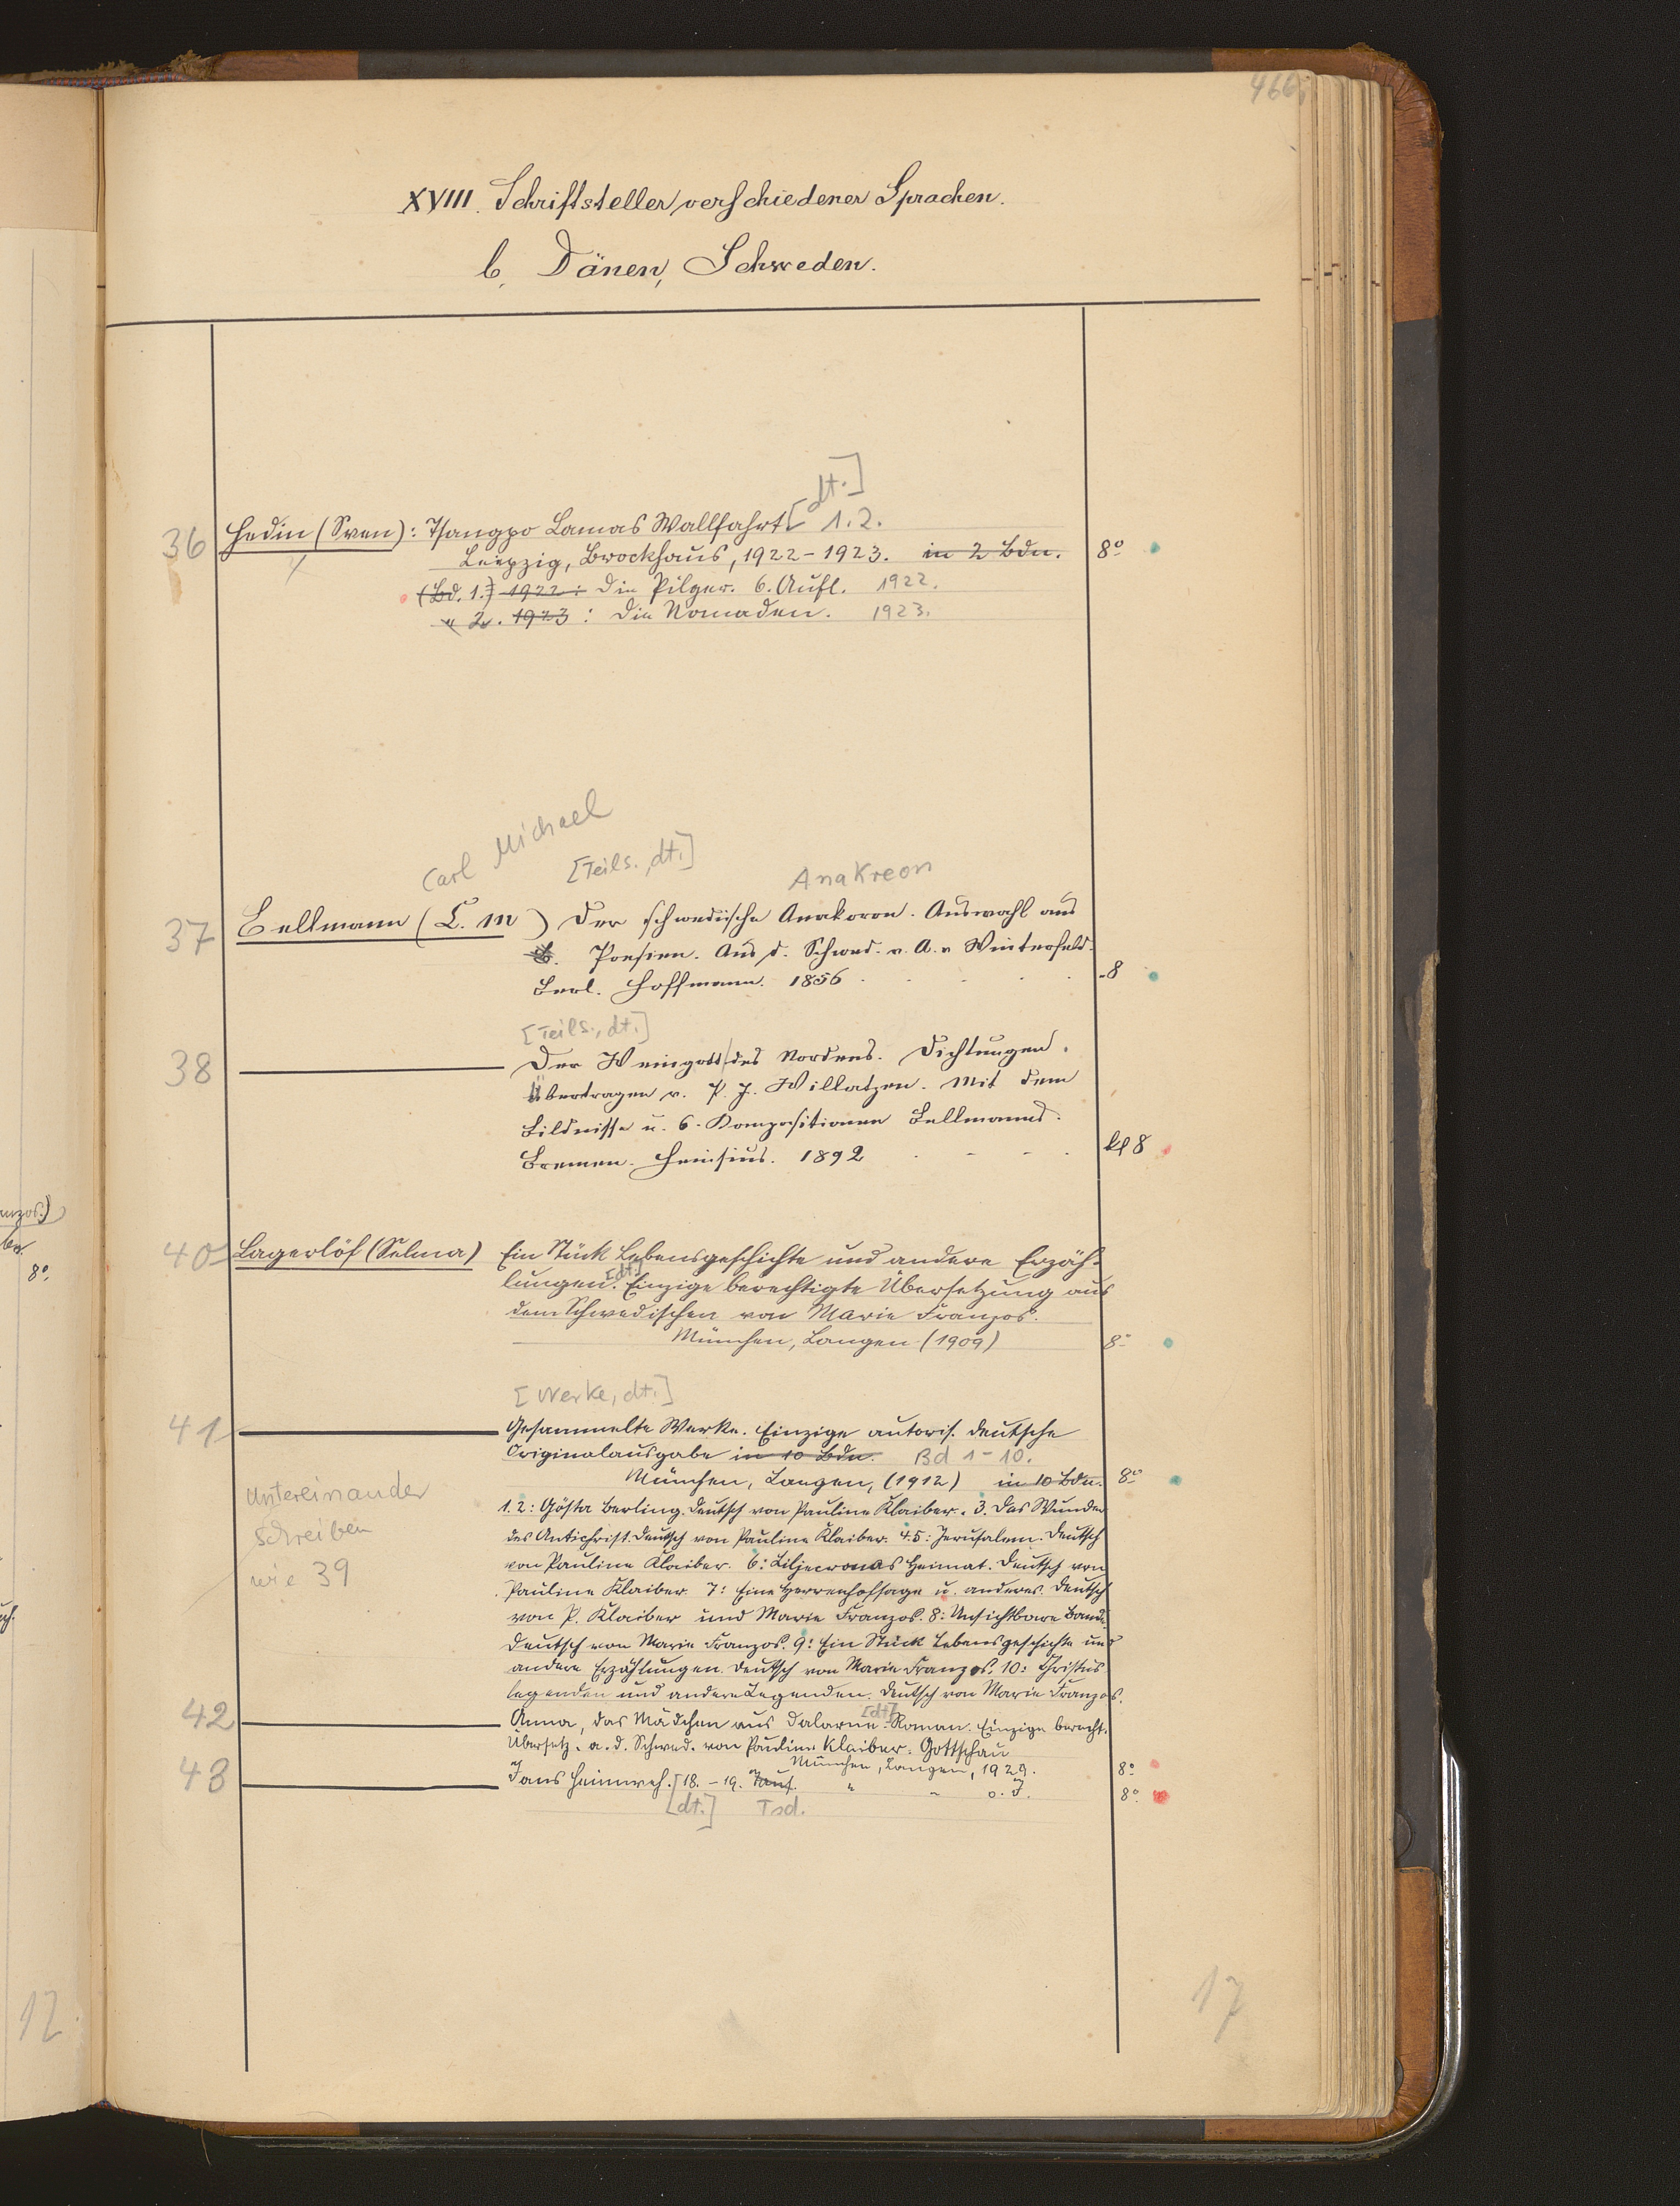 466
XVIII. Schriftsteller verschiedener Sprachen.
b, Dänen, Schweden.
[dt.]
36 Hedin (Sven): Tsangpo Lamas Wallfahrt 1.2.
Leipzig, Brockhaus, 1922-1923. in 2 Bdn. 8°
(Bd. 1.) 1922: Die Pilger. 6. Aufl. 1922.
" 2. 1923: Die Nomaden. 1923.
Carl Michael
[Teils., dt.] Anakreon
37 Bellmann (C. M ) Der schwedische Anakoron. Auswahl aus
Poesien. Aus d. Schwed. v. A. v Winterfeld.
Berl. Hoffmann. 1856 . . . . 8
[Teils., dt.]
38 Der Weingott des Nordens. Dichtungen.
Übertragen v. P. J. Willatzen. Mit dem
Bildnisse u. 6. Kompositionen Bellmanns.
Bremen. Heinsius. 1892 . - - . kl 8
40 Lagerlöf (Selma) Ein Stück Lebensgeschichte und andere Erzäh-
lungen. [dt.] Einzige berechtigte Übersetzung aus
dem Schwedischen von Marie Franzos.
München, Langen (1909) 8°
[Werke, dt.]
41 Gesammelte Werke. Einzige autoris. deutsche
Originalausgabe in 10 Bdn. Bd 1-10.
München, Langen, (1912) in 10 Bdn. 8°
untereinander
schreiben
wie 39
1.2: Gösta Berling. Deutsch von Pauline Klaiber. 3. Das Wunder
des Antichrist. Deutsch von Pauline Klaiber. 4.5: Jerusalem. Deutsch
von Pauline Klaiber. 6: Liljecronas Heimat. Deutsch von
Pauline Klaiber. 7: Eine Herrenhofsage u. anderes. Deutsch
von P. Klaiber und Marie Franzos. 8: Unsichtbare Bande.
Deutsch von Marie Franzos. 9: Ein Stück Lebensgeschichte und
andere Erzählungen. Deutsch von Marie Franzos. 10: Christus
legenden und andere Legenden. Deutsch von Marie Franzos.
42 Anna, das Mädchen aus Dalarne. [dt.] Roman. Einzige berecht.
Übersetz. a. d. Schwed. von Pauline Klaiber-Gottschau
München, Langen, 1929. 8°
43 Jans Heimweh. 18.-19. Taus. " " o. J. 8°
[dt.] Tsd.
17
anzos.)
8°.
12.